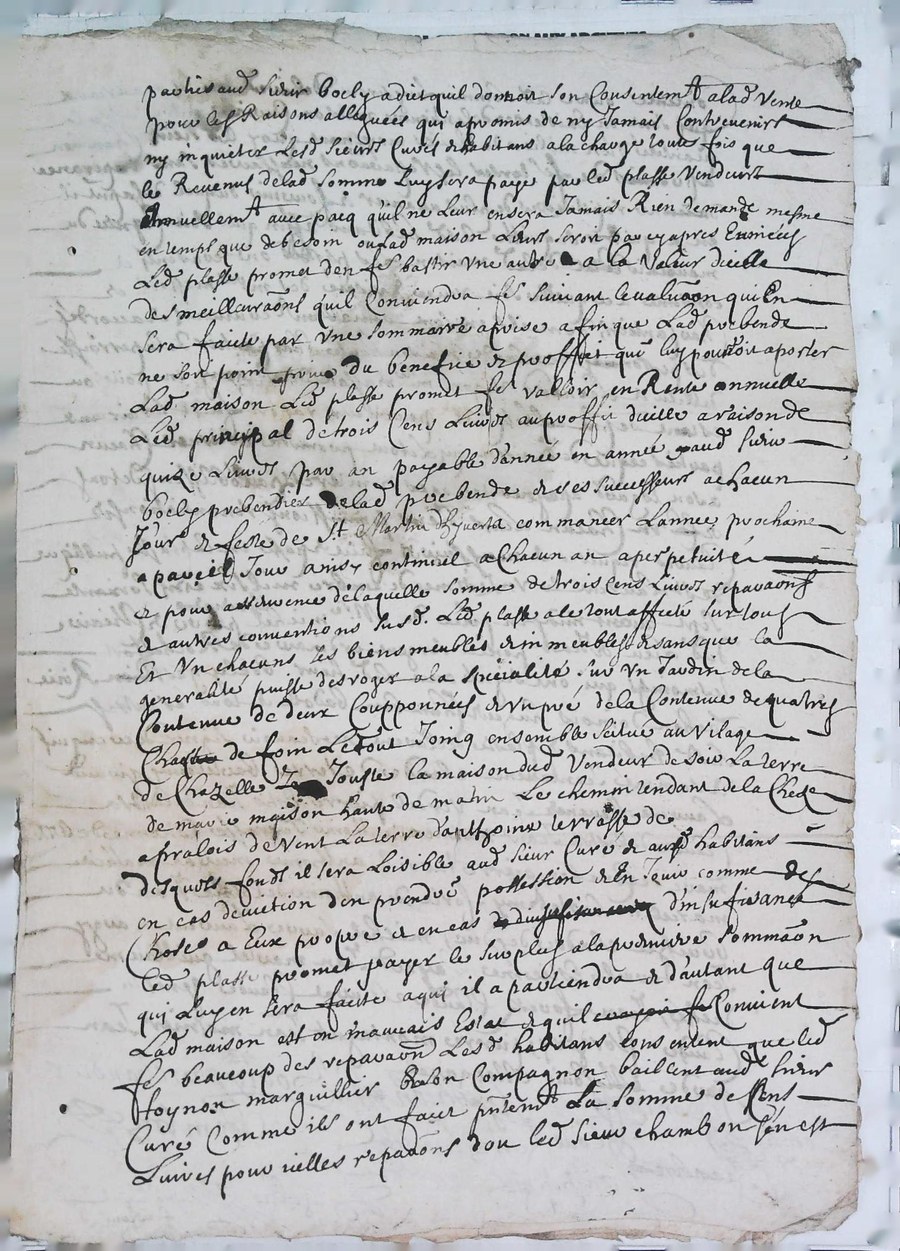 parties aud sieur boely a dict quil donnoit son Consentemt a lad vente
pour les Raisons alleguées qui a promis de ny Jamais Contrevenir
ny inquieter Lesd sieurs Curés & habitans a la charge toute fois que
le Revenus delad somme Luy sera paye par led plasse Vendeur
Annuellemt avec pacq quil ne leur en sera Jamais Rien demandé mesme
en temps que de besoin ou Lad maison Leurs seroit par cy apres
Led plasse promet den fe bastir une autre a la Valeur dicelle
des meilleuraons quil Conviendra fe suivant levaluaon qui En
sera faicte par Une sommaire aprise afin que Lad prebende
ne soit point du benefice & proffit que luy pourroit aporter
Lad maison Led plasse promet fe valloir en Rente annuelle
Led principal de trois Cens Livres au proffit dicelle a raison de
quize Livres par an payable dannée en année paud sieur
boely prebendier de lad prebende & ses successeurs a chacun
Jour & feste de St Martin dhyvert a commancer Lannee prochaine
a pareil Jour ainsy continuel a Chacun an a perpetuité
& pour asseurence de laquelle somme de trois cens Livres reparaons
& autres conventions susd. Led plasse a le tout affecté sur tous
Et Un chacuns ses biens meubles & inmeubles & sans que la
generalité puisse desroger a la specialité sur un Jardin de la
Contenue de deux Coupponnées & un pré de la Contenue de quatres
Chars de foin Le tout Joing ensemble scitue au Vilage
de Chazelle Jouste la maison dud Vendeur de soir La terre
de maison haute de matin Le chemin tendant de la Chese
a fralois de vent La terre danthoine terrasse de
desquels fondz il sera Loisible aud sieur Curé & ausd habitans
en cas deviction den prendre possession & En Jouir comme des
Choses a Eux propre & en cas dinsufizance
led plasse promet payer le surplus a la premiere sommaon
qui Luy en sera faicte a qui il apartiendra & dautant que
Lad maison est en mauvais Estat & quil Convient
fe beaucoup des reparaon Lesd habitans consentent que led
toynon marguillier & son Compagnon bailent aud sieur
Curé Comme ils ont faict pntemt La somme de Cens
Livres pour icelles reparaons dou led sieur chambon sen est